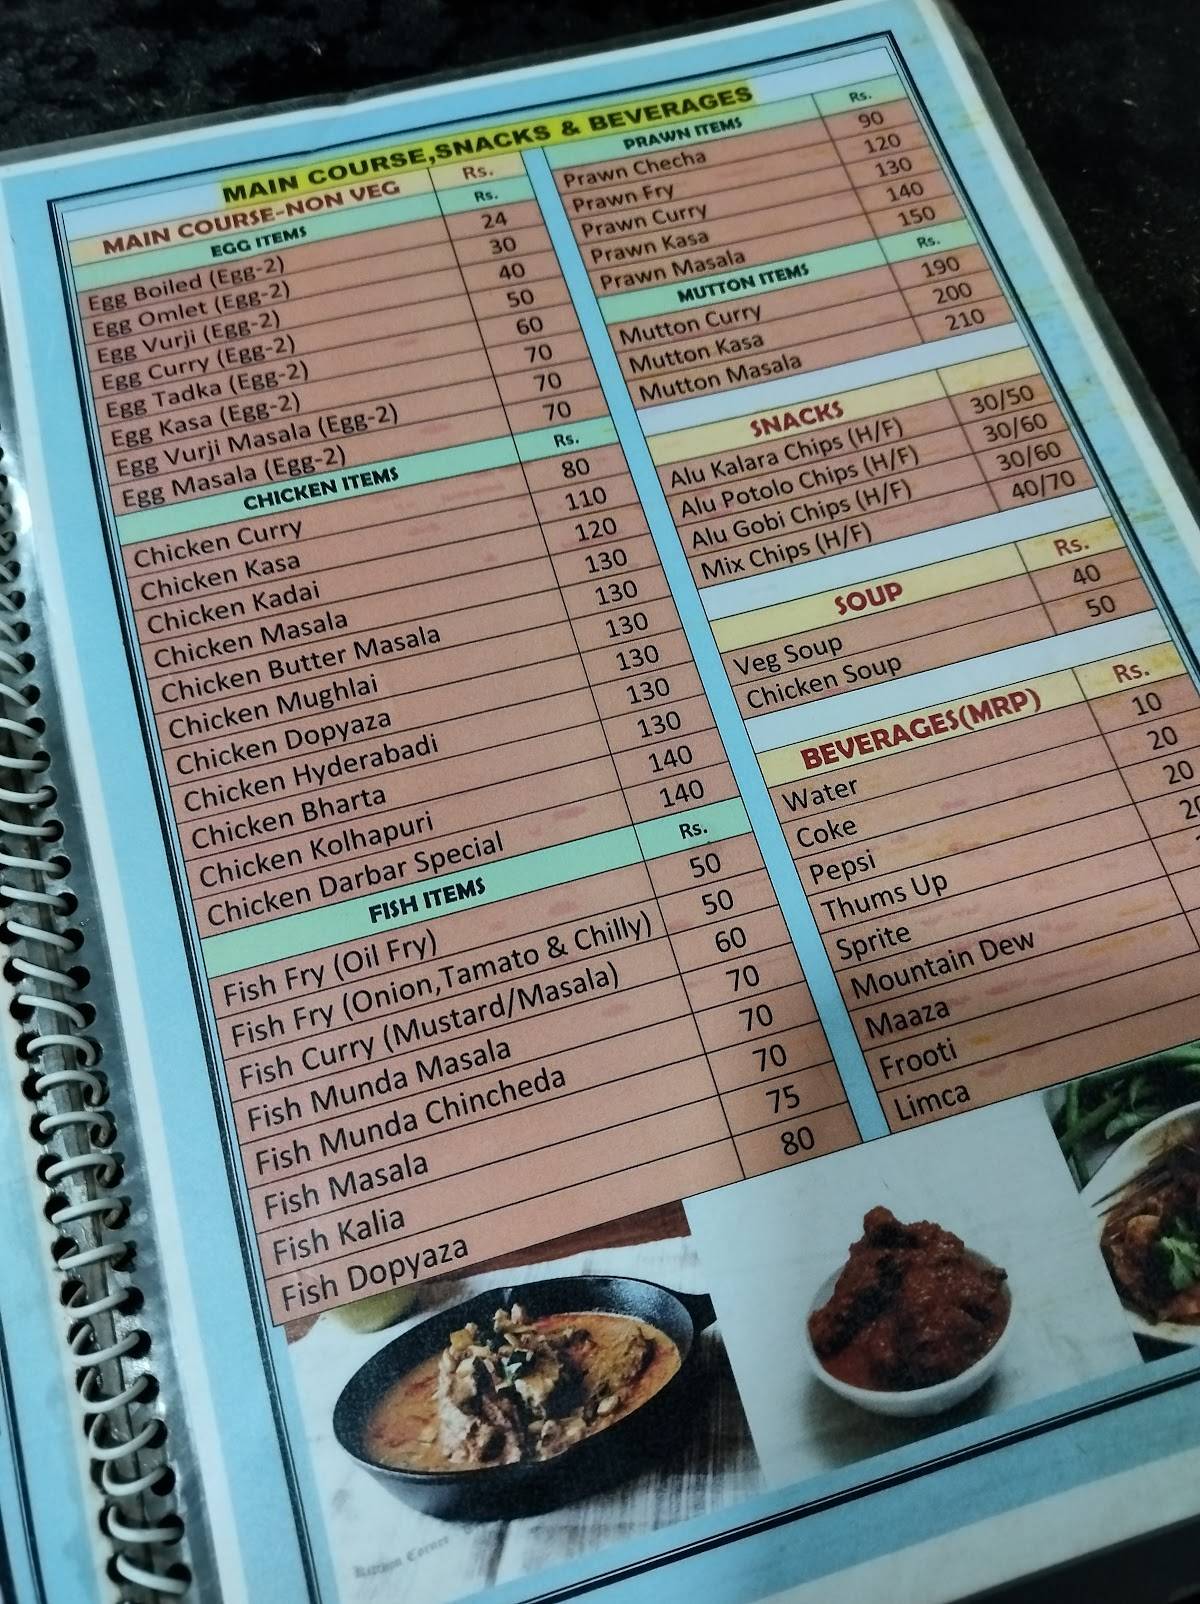 MAIN COURSE,SNACKS & BEVERAGES
MAIN COURSE-NON VEG Rs.
EGG ITEMS Rs.
Egg Boiled (Egg-2) 24
Egg Omlet (Egg-2) 30
Egg Vurji (Egg-2) 40
Egg Curry (Egg-2) 50
Egg Tadka (Egg-2) 60
Egg Kasa (Egg-2) 70
Egg Vurji Masala (Egg-2) 70
Egg Masala (Egg-2) 70
CHICKEN ITEMS Rs.
Chicken Curry 80
Chicken Kasa 110
Chicken Kadai 120
Chicken Masala 130
Chicken Butter Masala 130
Chicken Mughlai 130
Chicken Dopyaza 130
Chicken Hyderabadi 130
Chicken Bharta 130
Chicken Kolhapuri 140
Chicken Darbar Special 140
FISH ITEMS Rs.
Fish Fry (Oil Fry) 50
Fish Fry (Onion,Tamato & Chilly) 50
Fish Curry (Mustard/Masala) 60
Fish Munda Masala 70
Fish Munda Chincheda 70
Fish Masala 70
Fish Kalia 75
Fish Dopyaza 80
PRAWN ITEMS Rs.
Prawn Checha 90
Prawn Fry 120
Prawn Curry 130
Prawn Kasa 140
Prawn Masala 150
MUTTON ITEMS Rs.
Mutton Curry 190
Mutton Kasa 200
Mutton Masala 210
SNACKS
Alu Kalara Chips (H/F) 30/50
Alu Potolo Chips (H/F) 30/60
Alu Gobi Chips (H/F) 30/60
Mix Chips (H/F) 40/70
SOUP Rs.
Veg Soup 40
Chicken Soup 50
BEVERAGES(MRP) Rs.
Water 10
Coke 20
Pepsi 20
Thums Up
Sprite
Mountain Dew
Maaza
Frooti
Limca
Corner